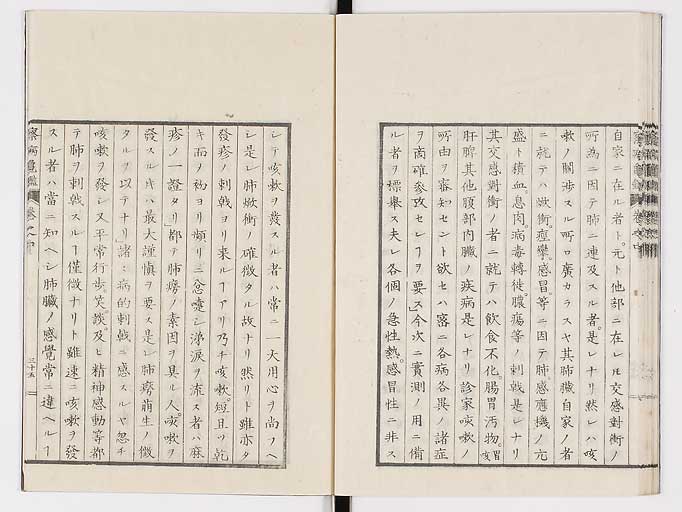 自家ニ在ル者ト。元ト他部ニ在レル交感對衝ノ
所為ニ因テ肺ニ連及スル者。是レナリ然レハ咳
嗽ノ關渉スル所ロ廣カラスヤ其肺臓自家ノ者
ニ就テハ焮衝。痙攣。感冒等ニ因テ肺。感應機ノ亢
盛ト積血。息肉。病毒轉徙。膿瘍等ノ刺戟是レナリ
其交感對衝ノ者ニ就テハ飲食不化腸胃汚物。
肝脾其他腹部内臓ノ疾病是レナリ診家咳嗽ノ
所由ヲ審知セント欲セハ審ニ各病各異ノ諸症
ヲ商確參攷セシヿヲ要ス今次ニ實測ノ用ニ備
ル者ヲ標擧ス夫レ各個ノ急性熱。感冒性ニ非ス
シテ咳嗽ヲ發スル者ハ常ニ一大用心ヲ尚フヘ
シ是レ肺焮衝ノ確徴タル故ナリ然リト雖亦タ
發疹ノ刺戟ヨリ来ルヿアリ乃チ咳嗽。短且ツ乾
キ而ヲ初ヨリ頻リニ噴嚏シ涕涙ヲ流ス者ハ麻
疹ノ一證タリ」都テ肺癆ノ素因ヲ具ル人。咳嗽ヲ
發スルキハ最大謹慎ヲ要ス是レ肺癆萠生ノ徴
タルヲ以テナリ」諸、病的刺戟ニ感スルヤ忽チ
咳嗽ヲ發シ又平常行歩。笑。談。及ヒ精神感動等都
テ肺ヲ刺戟スルヿ僅微ナリト雖速ニ咳嗽ヲ發
スル者ハ當ニ知ヘシ肺臓ノ感覺常ニ違ヘルヿ
三十五